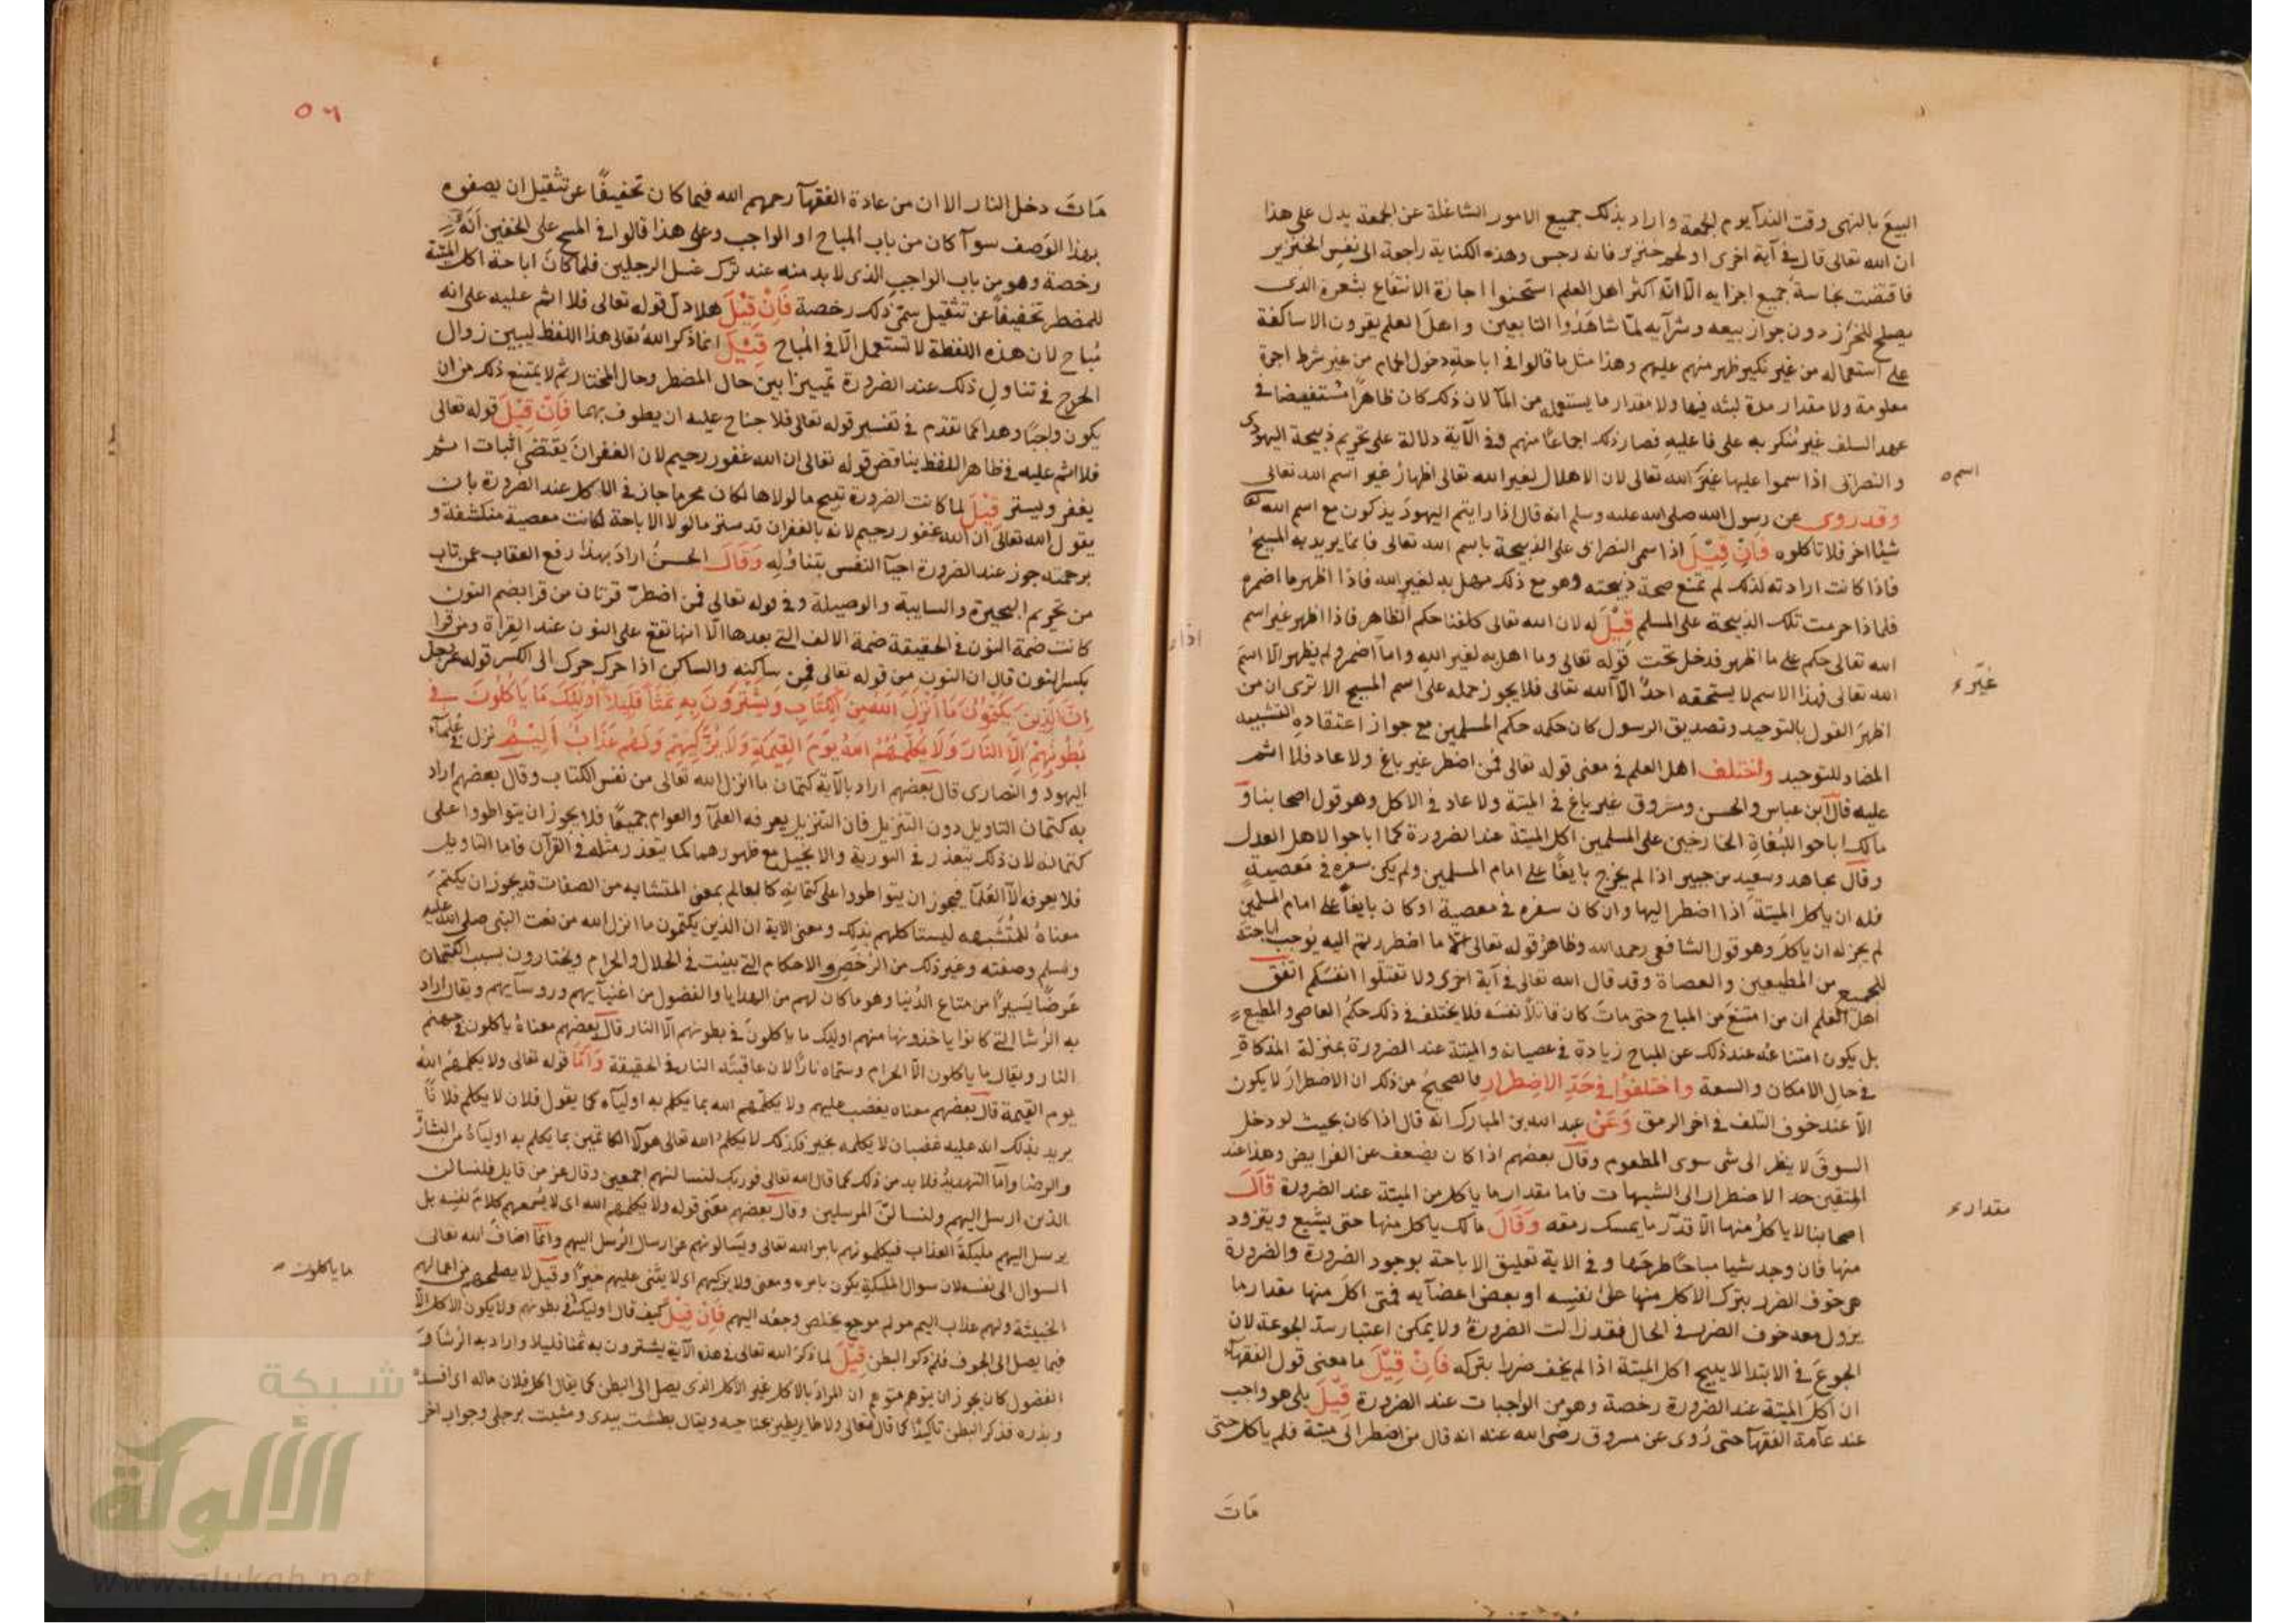 البيع بالنهى وقت الندآ يوم الجمعة واراد بذلك جميع الامور الشاغلة عن الجمعة يدل على هذا
ان الله تعالى قال فى آية اخرى او لحم خنزير فانه رجس وهذه الكناية راجعة الى نفس الخنزير
فاقتضت نجاسة جميع اجزايه الّا انّ اكثر اهل العلم استحسنوا اجازة الانتفاع بشعره الذى
يصلح للخرز دون جواز بيعه وشرآيه لمّا شاهَدُوا التابعين واهل العلم يقرون الاساكفة
على استعماله من غير نكير ظهر منهم عليهم وهذا مثل ما قالوا فى اباحة دخول الحمام من غير شرط اجرة
معلومة ولا مقدار مدة لبثه فيها ولا مقدار ما يستعمله من المآ لان ذلك كان ظاهرًا مستفيضا فى
عهد السلف غير مُنكر به على فاعليه فصار ذلك اجماعًا منهم وفى الآية دلالة على تحريم ذبيحة اليهودى
والنصرانى اذا سموا عليها غيَر الله تعالى لان الاهلال لغير الله تعالى اظهارُ غير اسم الله تعالى
اسم ه
وقد روى عن رسول الله صلى الله عليه وسلم انه قال اذا رايتم اليهودَ يذكرون مع اسم الله تعا
شيئا اخر فلا تاكلوه فَاِنْ قِيْلَ اذا سمى النصرانى على الذبيحة باسم الله تعالى فانما يريد به المسيحُ
فاذا كانت ارادته لذلك لم تمنع صحة ذبيحته وهو مع ذلك مهل به لغير الله فاذا اظهر ما اضمره
فلماذا حرمت تلك الذبيحة على المسلم قِيْلَ له لان الله تعالى كلفنا حكم الظاهر فاذا اظهر غير اسم
الله تعالى حكم على ما اظهر فدخل تحت قوله تعالى وما اهل به لغير الله واما اضمر ولم يظهر الّا اسمَ
الله تعالى فهذا الاسم لا يستحقه احدٌ الّا الله تعالى فلا يجوز حمله على اسم المسيح الا ترى ان من
غيرء
اظهرَ القول بالتوحيد وتصديق الرسول كان حكمه حكم المسلمين مع جواز اعتقاده التشبيه
المضاد للتوحيد واختلف اهل العلم فى معنى قوله تعالى فمن اضطر غير باغ ولا عاد فلا اثم
عليه قال ابن عباس والحسن ومسروق غير باغ فى الميتة ولا عاد فى الاكل وهو قول اصحابنا و
مالك اباحوا للبُغاةِ الخارجين على المسلمين اكل الميتة عند الضرورة كما اباحوا لاهل العدل
وقال مجاهد وسعيد بن جبير اذا لم يخرج باغيًا على امام المسلمين ولم يكن سفره فى معصية
فله ان ياكل الميتةَ اذا اضطر اليها وان كان سفره فى معصية او كان باغيًا على امام المسلمين
لم يجز له ان ياكلَ وهو قول الشافعى رحمه الله وظاهرُ قوله تعالى الّا ما اضطررتم اليه يُوجب اباحتَه
للجميع من المطيعين والعصاة وقد قال الله تعالى فى آية اخرى ولا تقتلوا انفسكم اتفق
اهل العلم ان من امتنعَ من المباح حتى ماتَ كان قاتلًا نفسَه فلا يختلف فى ذلك حكمُ العاصى والمطيع
بل يكون امتناعُه عند ذلك عن المباح زيادة فى عصيانه والميتة عند الضرورة بمنزلة المذكاةِ
فى حال الامكان والسعة واختلفوا فى حَدِّ الاضطرار فالصحيح من ذلك ان الاضطرارَ لا يكون
الّا عند خوف التلف فى اخر الرمق وَعَنْ عبد الله بن المبارك انه قال اذا كان بحيث لو دخل
السوقَ لا ينظر الى شى سوى المطعوم وقال بعضهم اذا كان يضعف عن الفرايض وهذا عند
المتقين حد الاضطرار الى الشبهات فاما مقدار ما ياكل من الميتة عند الضرورة قَالَ
مقدارء
اصحابنا لا ياكلُ منها الّا قدْرَ ما يمسك رمقه وَقَالَ مالك ياكل منها حتى يشبع ويتزود
منها فان وجد شيا مباحًا طرحَها وفى الاية تعليق الاباحة بوجود الضرورة والضرورة
هى خوف الضرر بترك الاكل منها على نفسِه او بعض اعضآيه فمتى اكلَ منها مقدار ما
يزول معه خوف الضرر فى الحال فقد زالت الضرورةُ ولا يمكن اعتبار سدّ الجوعة لان
الجوعَ فى الابتدا لا يبيح اكل الميتة اذا لم يخف ضررا بتركه فَاِنْ قِيْلَ ما معنى قول الفقهآء
ان اكلَ الميتة عند الضرورة رخصة وهو من الواجبات عند الضرورة قِيْلَ بلى هو واجب
عند عآمة الفقهآ حتى رُوى عن مسروق رضى الله عنه انه قال من اضطر الى ميتة فلم ياكل حتى
مَاتَ
٥٦
مَاتَ دخل النار الا ان من عادة الفقهآ رحمهم الله فيما كان تخفيفًا عن تثقيل ان يصفوه
بهذا الوَصف سوآ كان من باب المباح او الواجب وعلى هذا قالوا فى المسح على الخفين انّه
رخصة وهو من باب الواجب الذى لا بد منه عند ترك غسل الرجلين فلما كان اباحة اكل الميتة
للمضطر تخفيفًا عن تثقيل سمّى ذلك رخصة فَاِنْ قِيْلَ هلا دلّ قوله تعالى فلا اثم عليه على انه
مُباح لان هذه اللفظة لا تستعمل الّا فى المباح قِيْلَ انما ذكر اللهُ تعالى هذا اللفظ ليبين زوال
الحرج فى تناولِ ذلك عند الضرورة تمييزا بين حال المضطر وحال المختار ثم لا يمتنع ذلك من ان
يكون واجبًا وهذا كما تقدم فى تفسير قوله تعالى فلا جناح عليه ان يطوف بهما فَاِنْ قِيْلَ قوله تعالى
فلا اثم عليه فى ظاهر اللفظ يناقض قوله تعالى ان الله غفور رحيم لان الغفرانَ يقتضى اثبات اثم
يغفر ويستر قِيْلَ لما كانت الضرورة تبيح ما لولاها لكان محرما جاز فى الاكل عند الضرورة بان
يقول الله تعالى ان الله غفور رحيم لانه بالغفران قد ستر ما لولا الاباحة لكانت معصية منكشفة و
برحمته جوز عند الضرورة احيآ النفس بتناولِه وَقَالَ الحسنُ ارادَ بهذا رفع العقاب عمن تاب
من تحريم البحيرة والسايبة والوصيلة وفى قوله تعالى فمن اضطرّ قرئان من قرا بضم النون
كانت ضمة النون فى الحقيقة ضمة الالف التى بعدها الّا انها تقع على النون عند القِراة ومن قرا
بكسر النون قال ان النون من قوله تعالى فمن ساكنه والساكن اذا حرك حرك الى الكسر قوله عز وجل
اِنَّ الَّذِينَ يَكْتُمُونَ مَا اَنْزَلَ اللهُ مِنَ الْكِتَابِ وَيَشْتَرُونَ بِهِ ثَمَنًا قَلِيلًا اُولٰئِكَ مَا يَاْكُلُونَ فِى
بُطُونِهِمْ اِلَّا النَّارَ وَلَا يُكَلِّمُهُمُ اللهُ يَوْمَ الْقِيٰمَةِ وَلَا يُزَكِّيهِمْ وَلَهُمْ عَذَابٌ اَلِيْمٌ نزل فى عُلمآء
اليهود والنصارى قال بعضهم اراد بالآية كتمان ما انزل الله تعالى من نفس الكتاب وقال بعضهم اراد
به كتمان التاويل دون التنزيل فان التنزيل يعرفه العلمآ والعوام جميعًا فلا يجوز ان يتواطوا على
كتمانه لان ذلك يتعذر فى التورية والانجيل مع ظهورهما كما يتعذر مثله فى القرآن فاما التاويل
فلا يعرفه الّا العُلمآ فيجوز ان يتواطوا على كتمانِه كالعالم بمعنى المتشابه من الصفات قد يجوز ان يكتم
معناهُ للمُشَبّهه ليستاكلهم بذلك ومعنى الاية ان الذين يكتمون ما انزل الله من نعت النبى صلى الله عليه
وسلم وصفته وغير ذلك من الرُخَصِ والاحكام التى بينت فى الحلال والحرام ويختارون بسبب الكتمان
عَرضًا يَسِيرًا من متاع الدُنيا وهو ما كان لهم من الهدايا والفضول من اغنيآيهم وروسآيهم ويقال اراد
به الرُشا التى كانوا ياخذونها منهم اوليك ما ياكلون فى بطونهم الّا النار قال بعضهم معناهُ ياكلون فى جهنم
النار ويقال ما ياكلون الّا الحرام وسمّاه نارًا لان عاقبتَه النار فى الحقيقة وَاَمّا قوله تعالى ولا يكلمهُم اللهُ
يوم القيمة قال بعضهم معناه يغضب عليهم ولا يكلّمهم الله بما يكلم به اوليآه كما يقول فلان لا يكلم فلانًا
يريد بذلك انه عليه غضبان لا يكلمه بخير فكذلك لا يكلمُ الله تعالى هولآ الكاتمين بما يكلم به اوليآهُ من البشارة
والرضا وامّا التهديدُ فلا بد من ذلك كما قال الله تعالى فوربك لنسالنهم اجمعين وقال عز من قايل فلنسالن
الذين ارسل اليهم ولنسالنّ المرسلين وقال بعضهم معنى قوله ولا يكلمهم الله اى لا يُسمعهم كلامَ نفسِه بل
يرسل اليهم مليكة العذاب فيكلمونهم بامر الله تعالى ويَسالونهم عن ارسال الرُسل اليهم وانّما اضاف الله تعالى
السوال الى نفسه لان سوال المليكةِ يكون بامره ومعنى ولا يزكيهم اى لا يثنى عليهم خيرًا وقيل لا يصلحهم من اعمالهم
الخبيثة ولهم عذاب اليم مولم موجع يخلص وجعُه اليهم فَاِنْ قِيْلَ كيف قال اوليك فى بطونهم ولا يكون الاكل الّا
ما ياكلون
فيما يصل الى الجوف فلم ذكر البطن قِيْلَ لما ذكرَ الله تعالى فى هذه الآية يشترون به ثمنا قليلا واراد به الرُشا و
الفضول كان يجوز ان يتوهم متوهم ان المرادَ بالاكل غير الاكل الذى يصل الى البطن كما يقال اكل فلان ماله اى افسده
وبذره فذكر البطن تاكيدًا كما قال تعالى ولا طاير يطير بجناحيه ويقال بطشت بيدى ومشيت برجلى وجواب اخر
شبكة
الألوكة
www.alukah.net